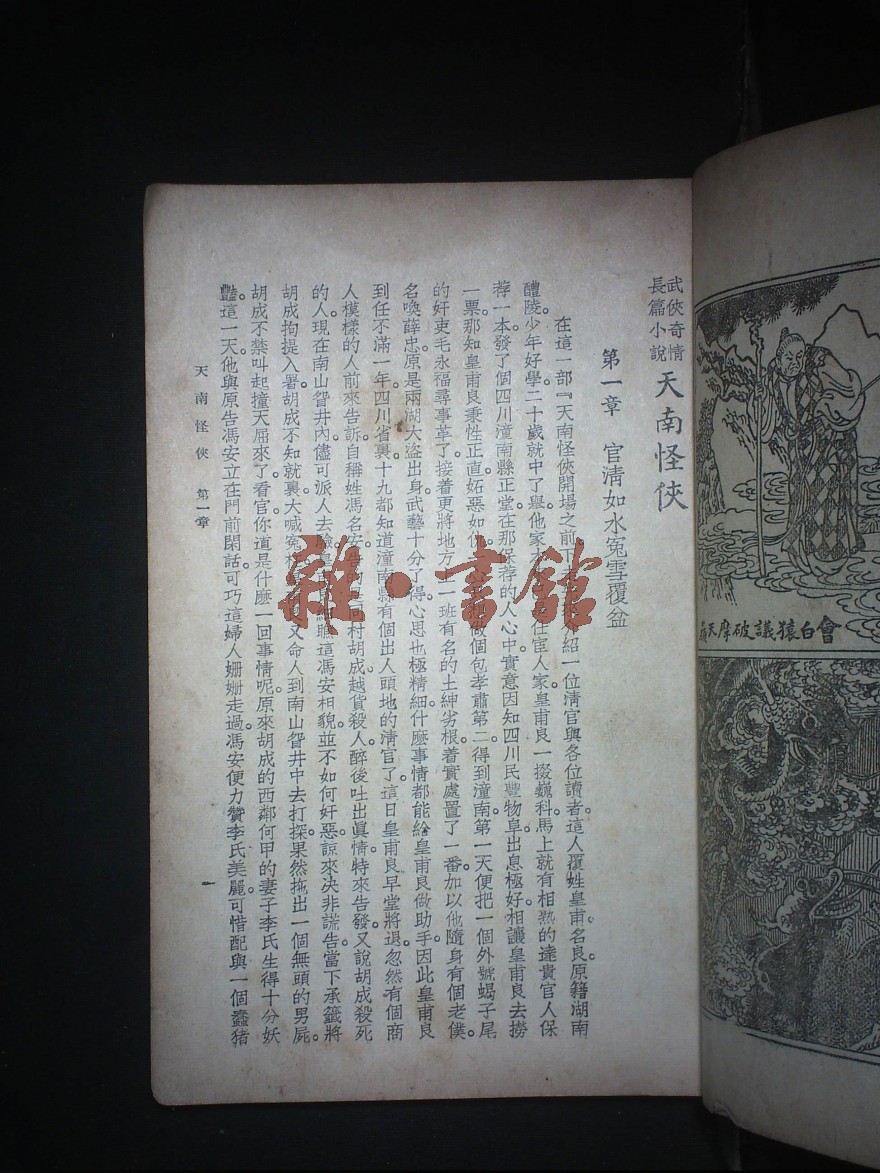 武俠奇情
長篇小說
天南怪俠
第一章　官清如水冤雪覆盆
在這一部『天南怪俠開場之前下紹一位清官與各位讀者。這人覆姓皇甫名良。原籍湖南
醴陵。少年好學二十歲就中了舉。他家任宦人家。皇甫良一掇巍科。馬上就有相熟的達貴官人保
荐一本。發了個四川潼南縣正堂。在那保荐的人心中。實意因知四川民豐物阜。出息極好。相讓皇甫良去撈
一票。那知皇甫良秉性正直。妬惡如做個包孝肅第二。得到潼南第一天。便把一個外號蝎子尾
的奸吏毛永福尋事革了。接着更將地方一班有名的土紳劣根。着實處置了一番。加以他隨身有個老僕。
名喚薛忠。原是兩湖大盜出身。武藝十分了得。心思也極精細。什麽事情都能給皇甫良做助手。因此皇甫良
到任不滿一年。四川省裏十九都知道潼南縣有個出人頭地的清官了。這日皇甫良早堂將退。忽然有個商
人模樣的人前來告訴。自稱姓馮名安。告同村胡成越貨殺人。醉後吐出眞情。特來告發。又說胡成殺死
的人。現在南山眢井內。儘可派人去驗。皇瞧這馮安相貌。並不如何奸惡。諒來决非謊告。當下承籤將
胡成拘提入署。胡成不知就裏。大喊冤又命人到南山眢井中去打探。果然拖出一個無頭的男屍。
胡成不禁叫起撞天屈來了。看官。你道是什麽一回事情呢。原來胡成的西鄰何甲的妻子李氏。生得十分妖
豔。這一天。他與原告馮安立在門前閑話。可巧這婦人姍姍走過。馮安便力贊李氏美麗。可惜配與一個蠢猪
天南怪俠　第一章
一
天摩破議猿白會
雜·書館